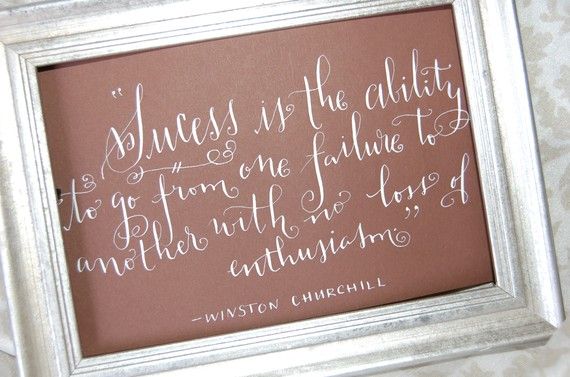 "Sucess is the ability
to go from one failure to
another with no loss of
enthusiasm."
-WINSTON CHURCHILL